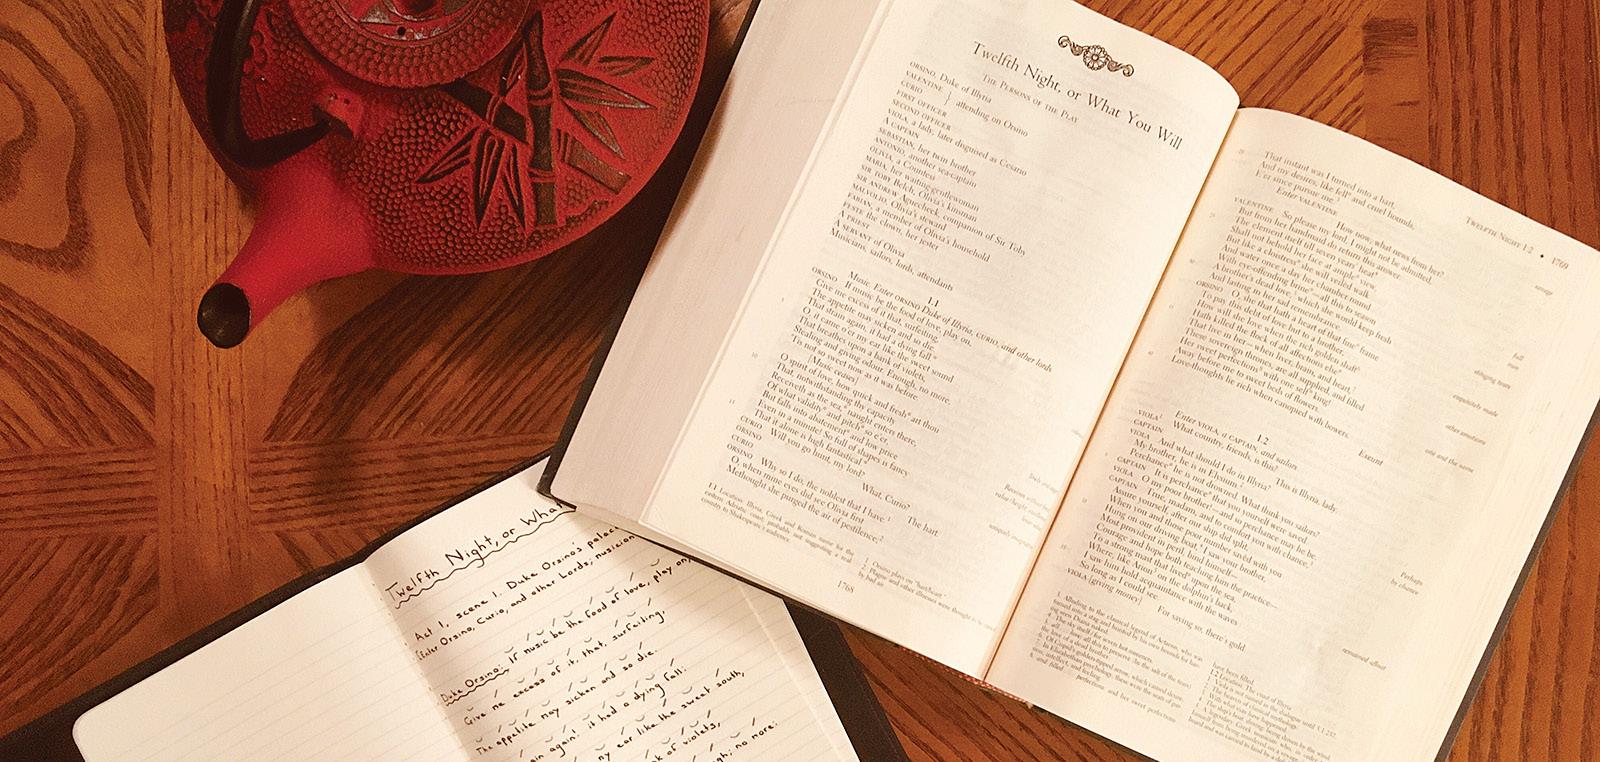 Twelfth Night, or What You Will
THE PERSONS OF THE PLAY
ORSINO, Duke of Illyria
VALENTINE
CURIO
attending on Orsino
FIRST OFFICER
SECOND OFFICER
VIOLA, a lady, later disguised as Cesario
A CAPTAIN
SEBASTIAN, her twin brother
ANTONIO, another sea-captain
OLIVIA, a Countess
MARIA, her waiting-gentlewoman
SIR TOBY Belch, Olivia's kinsman
SIR ANDREW Aguecheek, companion of Sir Toby
MALVOLIO, Olivia's steward
FABIAN, a member of Olivia's household
FESTE the clown, her jester
A PRIEST
A SERVANT of Olivia
Musicians, sailors, lords, attendants
1.1
Music. Enter ORSINO Duke of Illyria, CURIO, and other lords
ORSINO If music be the food of love, play on,
Give me excess of it that, surfeiting,
The appetite may sicken and so die.
That strain again, it had a dying fall.
O, it came o'er my ear like the sweet sound
That breathes upon a bank of violets,
Stealing and giving odour. Enough, no more,
'Tis not so sweet now as it was before.
[Music ceases]
10 O spirit of love, how quick and fresh art thou
That, notwithstanding thy capacity
Receiveth as the sea, naught enters there,
Of what validity and pitch so e'er,
But falls into abatement and low price
Even in a minute! So full of shapes is fancy
That it alone is high fantastical.
CURIO Will you go hunt, my lord?
ORSINO What, Curio?
CURIO The hart.
ORSINO Why so I do, the noblest that I have.
O, when mine eyes did see Olivia first
Methought she purged the air of pestilence;
1.1 Location: Illyria, Greek and Roman name for the
eastern Adriatic coast; probably not suggesting a real
country to Shakespeare's audience.
1. Orsino plays on "hart/heart."
2. Plague and other illnesses were thought to be
by bad air.
1768
TWELFTH NIGHT 1.2 • 1769
That instant was I turned into a hart,
And my desires, like fell and cruel hounds,
E'er since pursue me.
Enter VALENTINE
How now, what news from her?
VALENTINE So please my lord, I might not be admitted,
But from her handmaid do return this answer:
The element itself till seven years' heat
Shall not behold her face at ample view,
But like a cloistress she will veiled walk
And water once a day her chamber round
With eye-offending brine—all this to season
A brother's dead love, which she would keep fresh
And lasting in her sad remembrance.
ORSINO O, she that hath a heart of that fine frame
To pay this debt of love but to a brother,
How will she love when the rich golden shaft
Hath killed the flock of all affections else
That live in her—when liver, brain, and heart,
These sovereign thrones, are all supplied, and filled
Her sweet perfections with one self king!
Away before me to sweet beds of flowers.
Love-thoughts lie rich when canopied with bowers.
Exeunt
1.2
Enter VIOLA, a CAPTAIN, and sailors
VIOLA What country, friends, is this?
CAPTAIN This is Illyria, lady.
VIOLA And what should I do in Illyria?
My brother, he is in Elysium.
Perchance he is not drowned. What think you sailors?
CAPTAIN It is perchance that you yourself were saved.
VIOLA O my poor brother!—and so perchance may he be.
CAPTAIN True, madam, and to comfort you with chance,
Assure yourself, after our ship did split,
When you and those poor number saved with you
Hung on our driving boat, I saw your brother,
Most provident in peril, bind himself—
Courage and hope both teaching him the practice—
To a strong mast that lived upon the sea,
Where, like Arion on the dolphin's back,
I saw him hold acquaintance with the waves
So long as I could see.
VIOLA (giving money) For saying so, there's gold
savage
full
exquisitely made
other emotions
one and the same
Perhaps
by chance
remained afloat
Twelfth Night, or What
Act 1, scene 1. Duke Orsino's palace
Enter Orsino, Curio, and other Lords; musician
Duke Orsino: If music be the food of love, play on,
Give me excess of it, that, surfeiting,
The appetite may sicken and so die.
ain again! it had a dying fall:
my ear like the sweet south,
k of violets,
gh; no more: